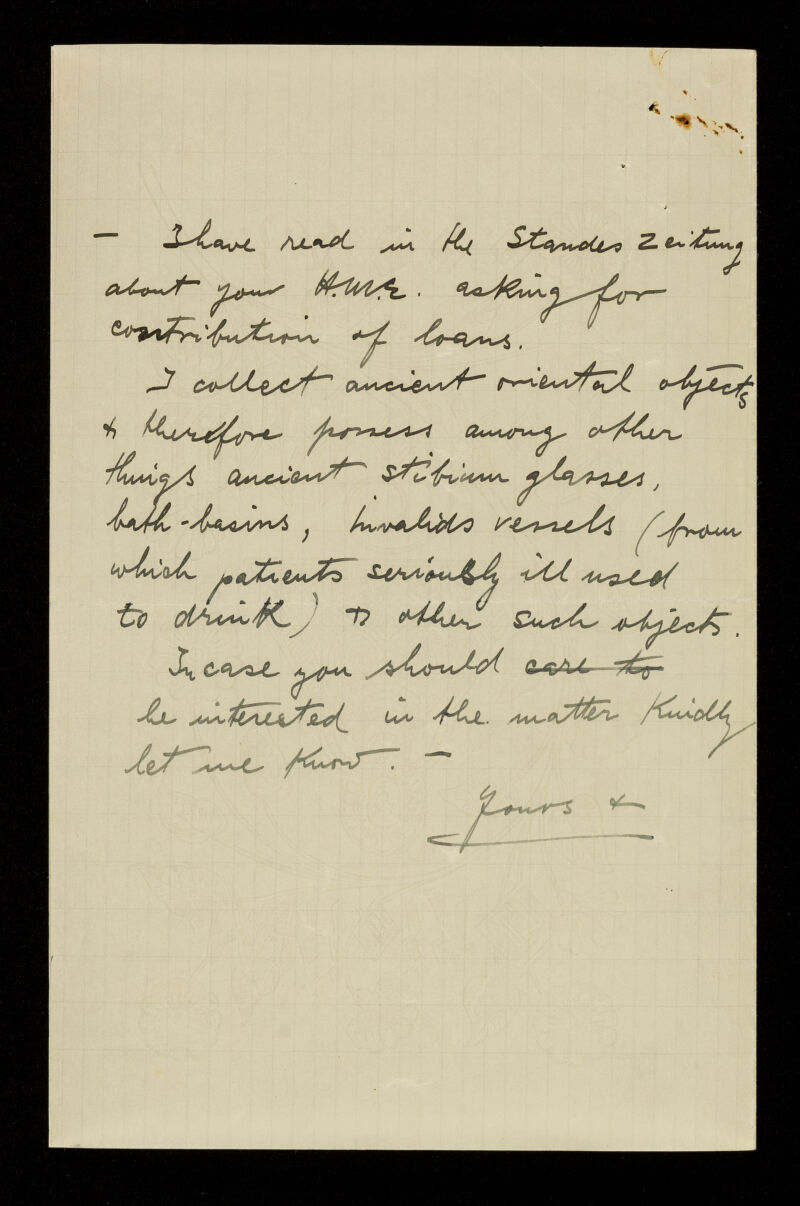 — I have read in the Standes Zeitung
about your H.M.E. asking for
contribution of loans.
I collect ancient oriental objects
& therefore possess among other
things ancient stibium glasses,
bath-basins, invalids vessels (from
which patients seriously ill used
to drink) & other such objects.
In case you should care to
be interested in the matter Kindly
let me Know. —
Yours &